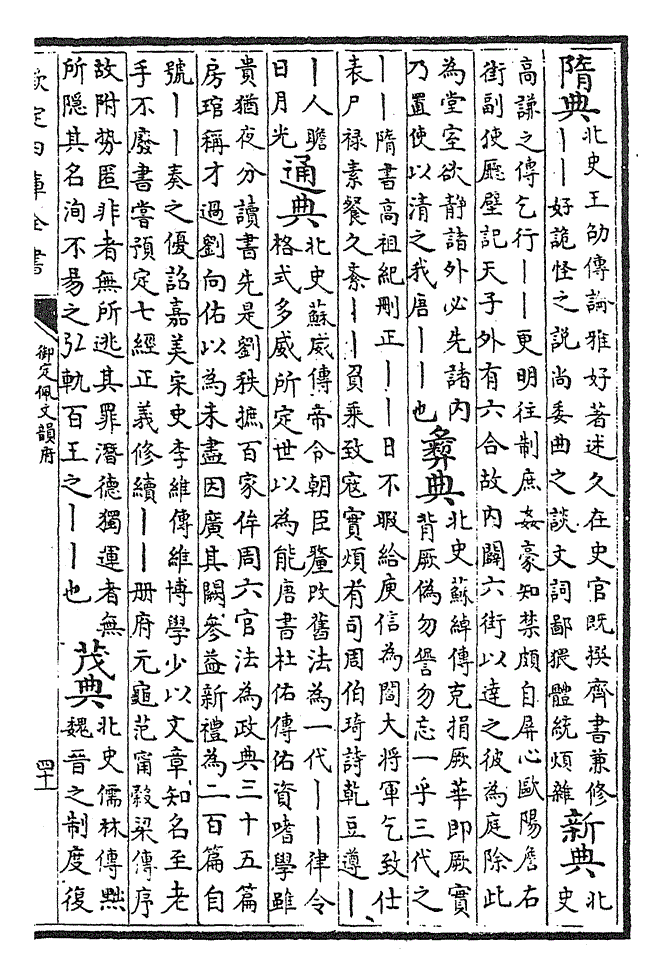 隋典
北史王劭傳論雅好著述久在史官既撰齊書兼修
丨丨好詭怪之説尚委曲之談文詞鄙猥體統煩雜
新典
北
史
高謙之傳乞行丨丨更明往制庶姦豪知禁頗自屏心歐陽詹右
街副使廳壁記天子外有六合故内闢六街以達之彼為庭除此
為堂室欲静諸外必先諸内
乃置使以清之我唐丨丨丨也
彝典
北史蘇綽傳克捐厥華即厥實
背厥偽勿諐勿忘一乎三代之
丨丨隋書高祖紀刪正丨丨日不暇給庾信為閻大将軍乞致仕
表尸禄素餐久紊丨丨負乗致寇實煩有司周伯琦詩乾豆遵丨
丨人瞻
日月光
通典
北史蘇威傳帝令朝臣釐改舊法為一代丨丨律令
格式多威所定世以為能唐書杜佑傳佑資嗜學雖
貴猶夜分讀書先是劉秩摭百家侔周六官法為政典三十五篇
房琯稱才過劉向佑以為未盡因廣其闕參益新禮為二百篇自
號丨丨奏之優詔嘉美宋史李維傳維博學少以文章知名至老
手不廢書嘗預定七經正義修續丨丨册府元龜范甯穀梁傳序
故附勢匿非者無所逃其罪潛德獨運者無
所隱其名洵不易之弘軌百王之丨丨也
茂典
北史儒林傳黜
魏晉之制度復
欽定四庫全書
御定佩文韻府
四十